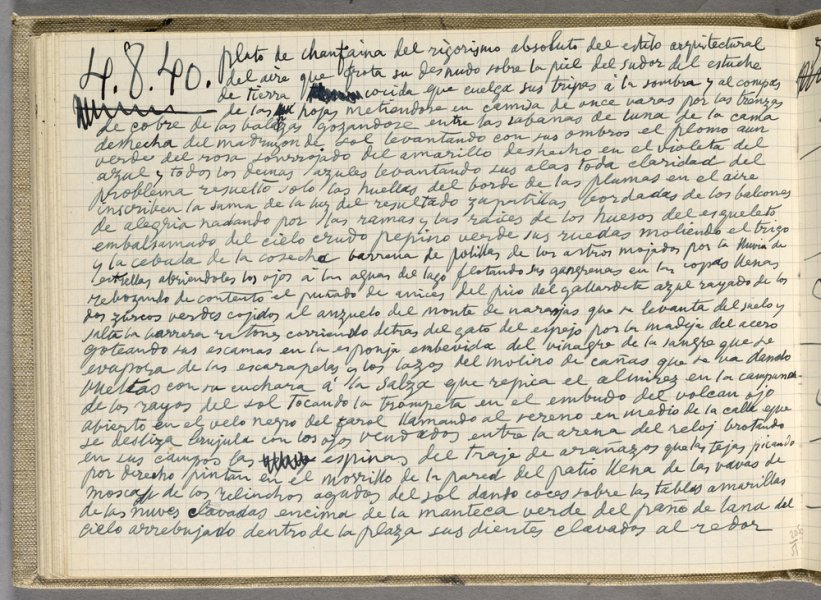 4.8.40. plato de chanfaina del rigorismo absoluto del estilo arquitectural
del aire que frota su desnudo sobre la piel del sudor del estuche
de tierra cocida que cuelga sus tripas a la sombra y al compas
de las hojas metiendose en camisa de once varas por las trenzas
de cobre de las balizas gozandose entre las sabanas de luna de la cama
deshecha del matrizon de sol levantando con sus ombros el plomo aun
verde del rosa sonrrojado del amarillo deshecho en el violeta del
azul y todos los demas azules levantando sus alas toda claridad del
problema resuelto solo las huellas del borde de las plumas en el aire
inscriben la suma de la luz del resultado zapatillas bordadas de los balcones
de alegria nadando por las ramas y las raices de los huesos del esqueleto
embalsamado del cielo crudo pepino verde sus ruedas moliendo el trigo
y la cebada de la cosecha barrena de polillas de los astros mojados por la lluvia de
estrellas abriendoles los ojos á las aguas del lago flotando sus gangrenas en las copas llenas
rebozando de contento el puñado de anices del pico del gallardete azul rayado de los
dos zurcos verdes cojidos al anzuelo del monte de naranjas que se levanta del suelo y
salta la barrera ratones corriendo detras del gato del espejo por la madeja del acero
goteando sus escamas en la esponja embevida del vinagre de la sangre que se
evapora de las escarapelas y los lazos del molino de cañas que se va dando
vueltas con su cuchara á la salza que repica el almirez en la campana
de los rayos del sol tocando la trompeta en el embudo del volcan ojo
abierto en el velo negro del farol llamando al sereno en medio de la calle que
se desliza brujula con los ojos vendados entre la arena del reloj brotando
en sus campos las espinas del traje de arrañazos que las tejas picando
por derecho pintan en el morrillo de la pared del patio llena de las vavas de
moscas de los relinchos agudos del sol dando coces sobre las tablas amarillas
de las nuves clavadas encima de la manteca verde del pano de lana del
cielo arrebujado dentro de la plaza sus dientes clavados al redor